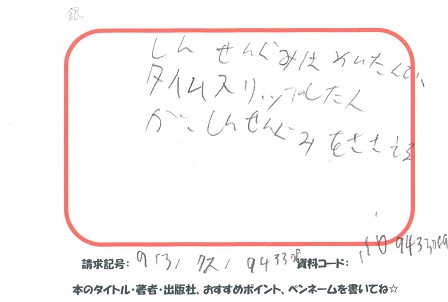 銀
しんせんぐみはれいたんで、
タイムスリップしたん
がこしんせんぐみをささえる
請求記号: 913/クス/ 資料コード:
本のタイトル・著者・出版社、おすすめポイント、ペンネームを書いてね☆